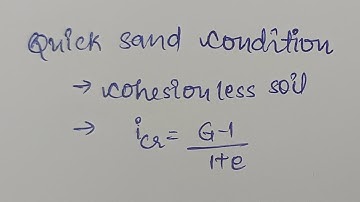 Quick sand condition
→ cohesionless soil
→ i_cr = G-1 / 1+e